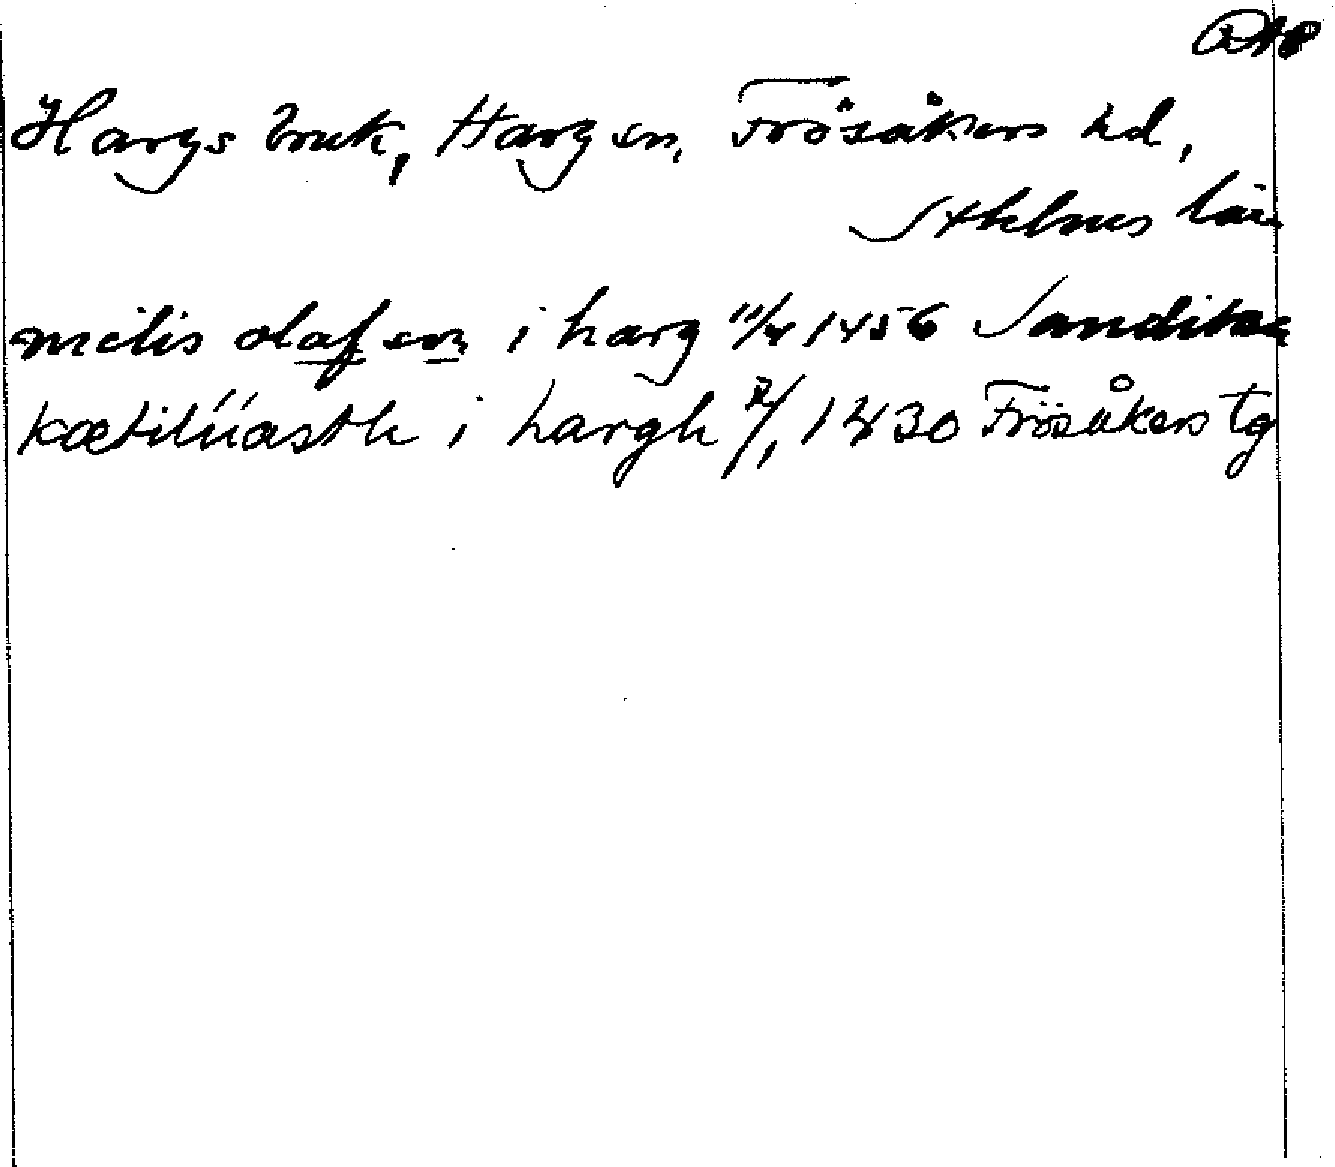 Hargs bruk, Harg sn, Frösåkers hd,
Sthlms län
nielis olafson i harg 11/4 1456
kætiluasth i hargh 1430 Frösåkers tg